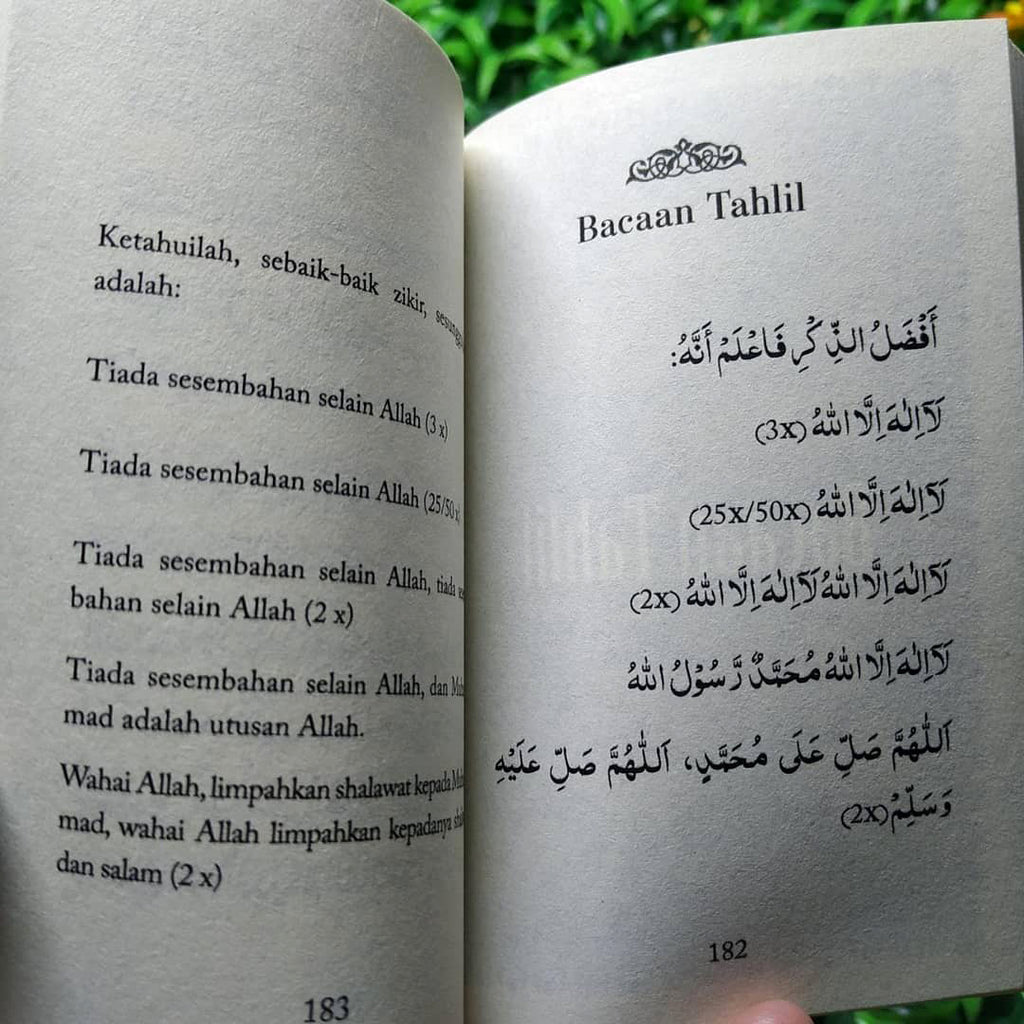 Bacaan Tahlil
أَفْضَلُ الذِّكْرِ فَاعْلَمْ أَنَّهُ:
لَآ اِلٰهَ اِلَّا اللهُ (3x)
لَآ اِلٰهَ اِلَّا اللهُ (25x/50x)
لَآ اِلٰهَ اِلَّا اللهُ لَآ اِلٰهَ اِلَّا اللهُ (2x)
لَآ اِلٰهَ اِلَّا اللهُ مُحَمَّدٌ رَّسُوْلُ اللهُ
اَللّٰهُمَّ صَلِّ عَلَى مُحَمَّدٍ، اَللّٰهُمَّ صَلِّ عَلَيْهِ
وَسَلِّمْ (2x)
182
Ketahuilah, sebaik-baik zikir,
adalah:
Tiada sesembahan selain Allah (3 x)
Tiada sesembahan selain Allah (25/50 x)
Tiada sesembahan selain Allah, tiada
bahan selain Allah (2 x)
Tiada sesembahan selain Allah, dan
mad adalah utusan Allah.
Wahai Allah, limpahkan shalawat kepada
mad, wahai Allah limpahkan kepadanya
dan salam (2 x)
183